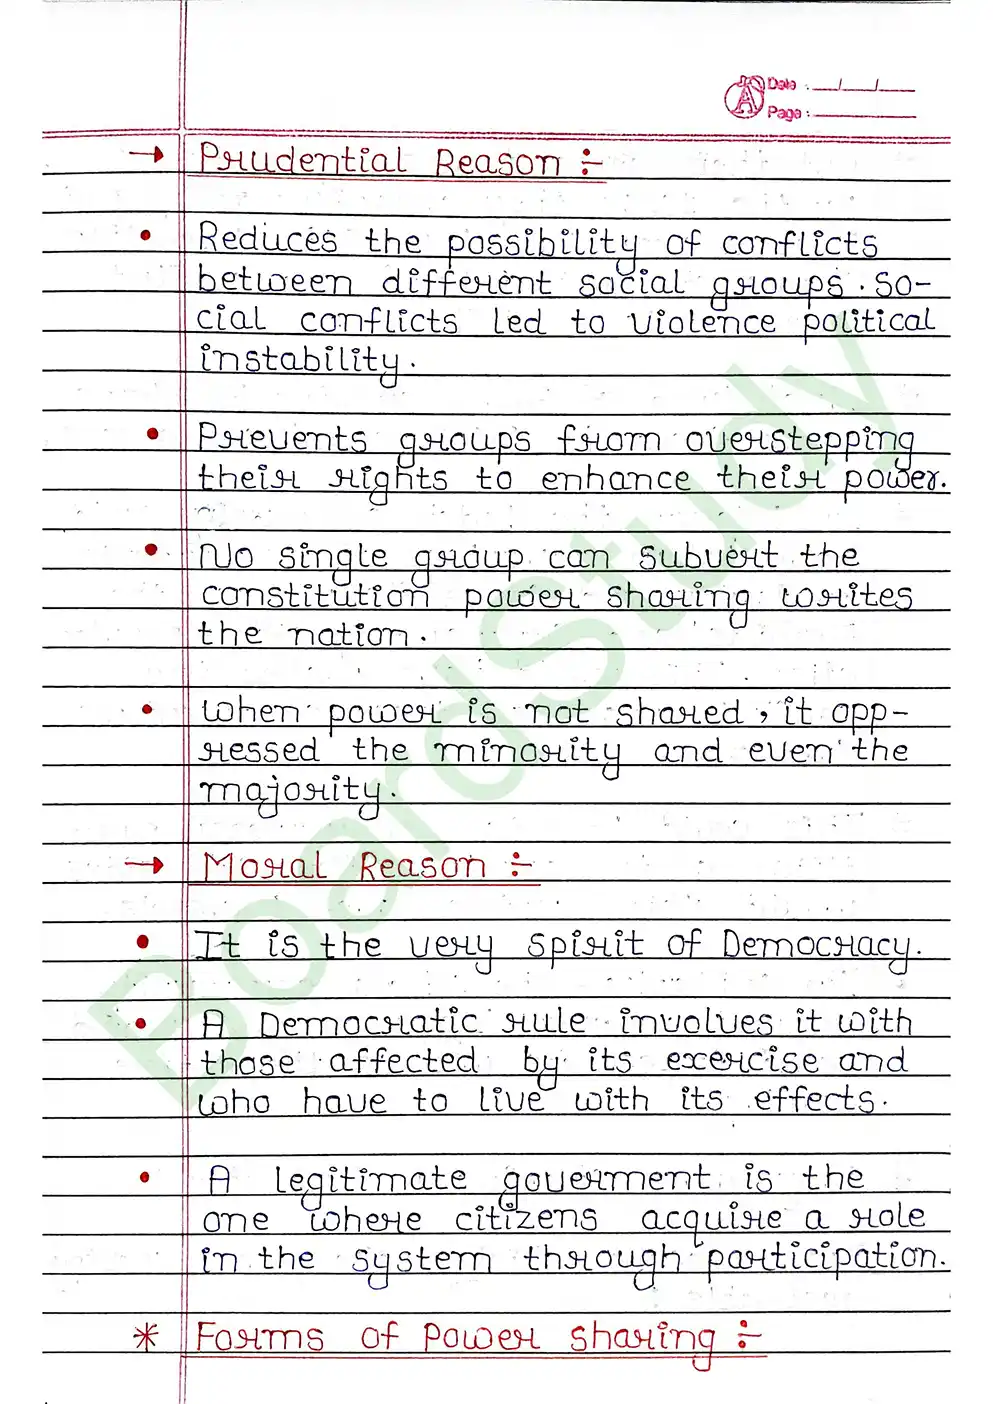 Date : __/__/__
Page : ________
→ Prudential Reason :-
• Reduces the possibility of conflicts
between different social groups. so-
cial conflicts led to violence political
instability.
• Prevents groups from overstepping
their rights to enhance their power.
• No single group can subvert the
constitution power sharing writes
the nation.
• when power is not shared, it opp-
ressed the minority and even the
majority.
→ Moral Reason :-
• It is the very spirit of Democracy.
• A Democratic rule involves it with
those affected by its exercise and
who have to live with its effects.
• A legitimate goverment is the
one where citizens acquire a role
in the system through participation.
* Forms of Power sharing :-
BoardStudy